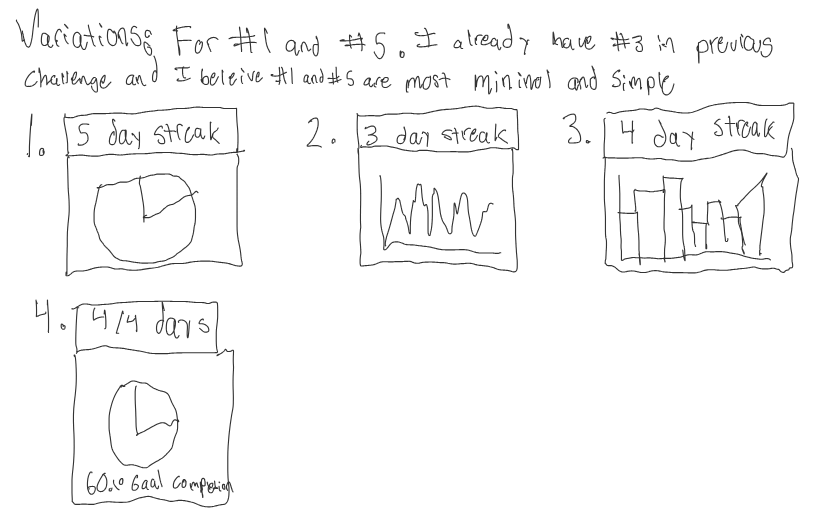 Variations: For #1 and #5. I already have #3 in previous
challenge and I beleive #1 and #5 are most mininol and simple
1. 5 day streak
2. 3 day streak
3. 4 day streak
4. 4/4 days
Goal completion